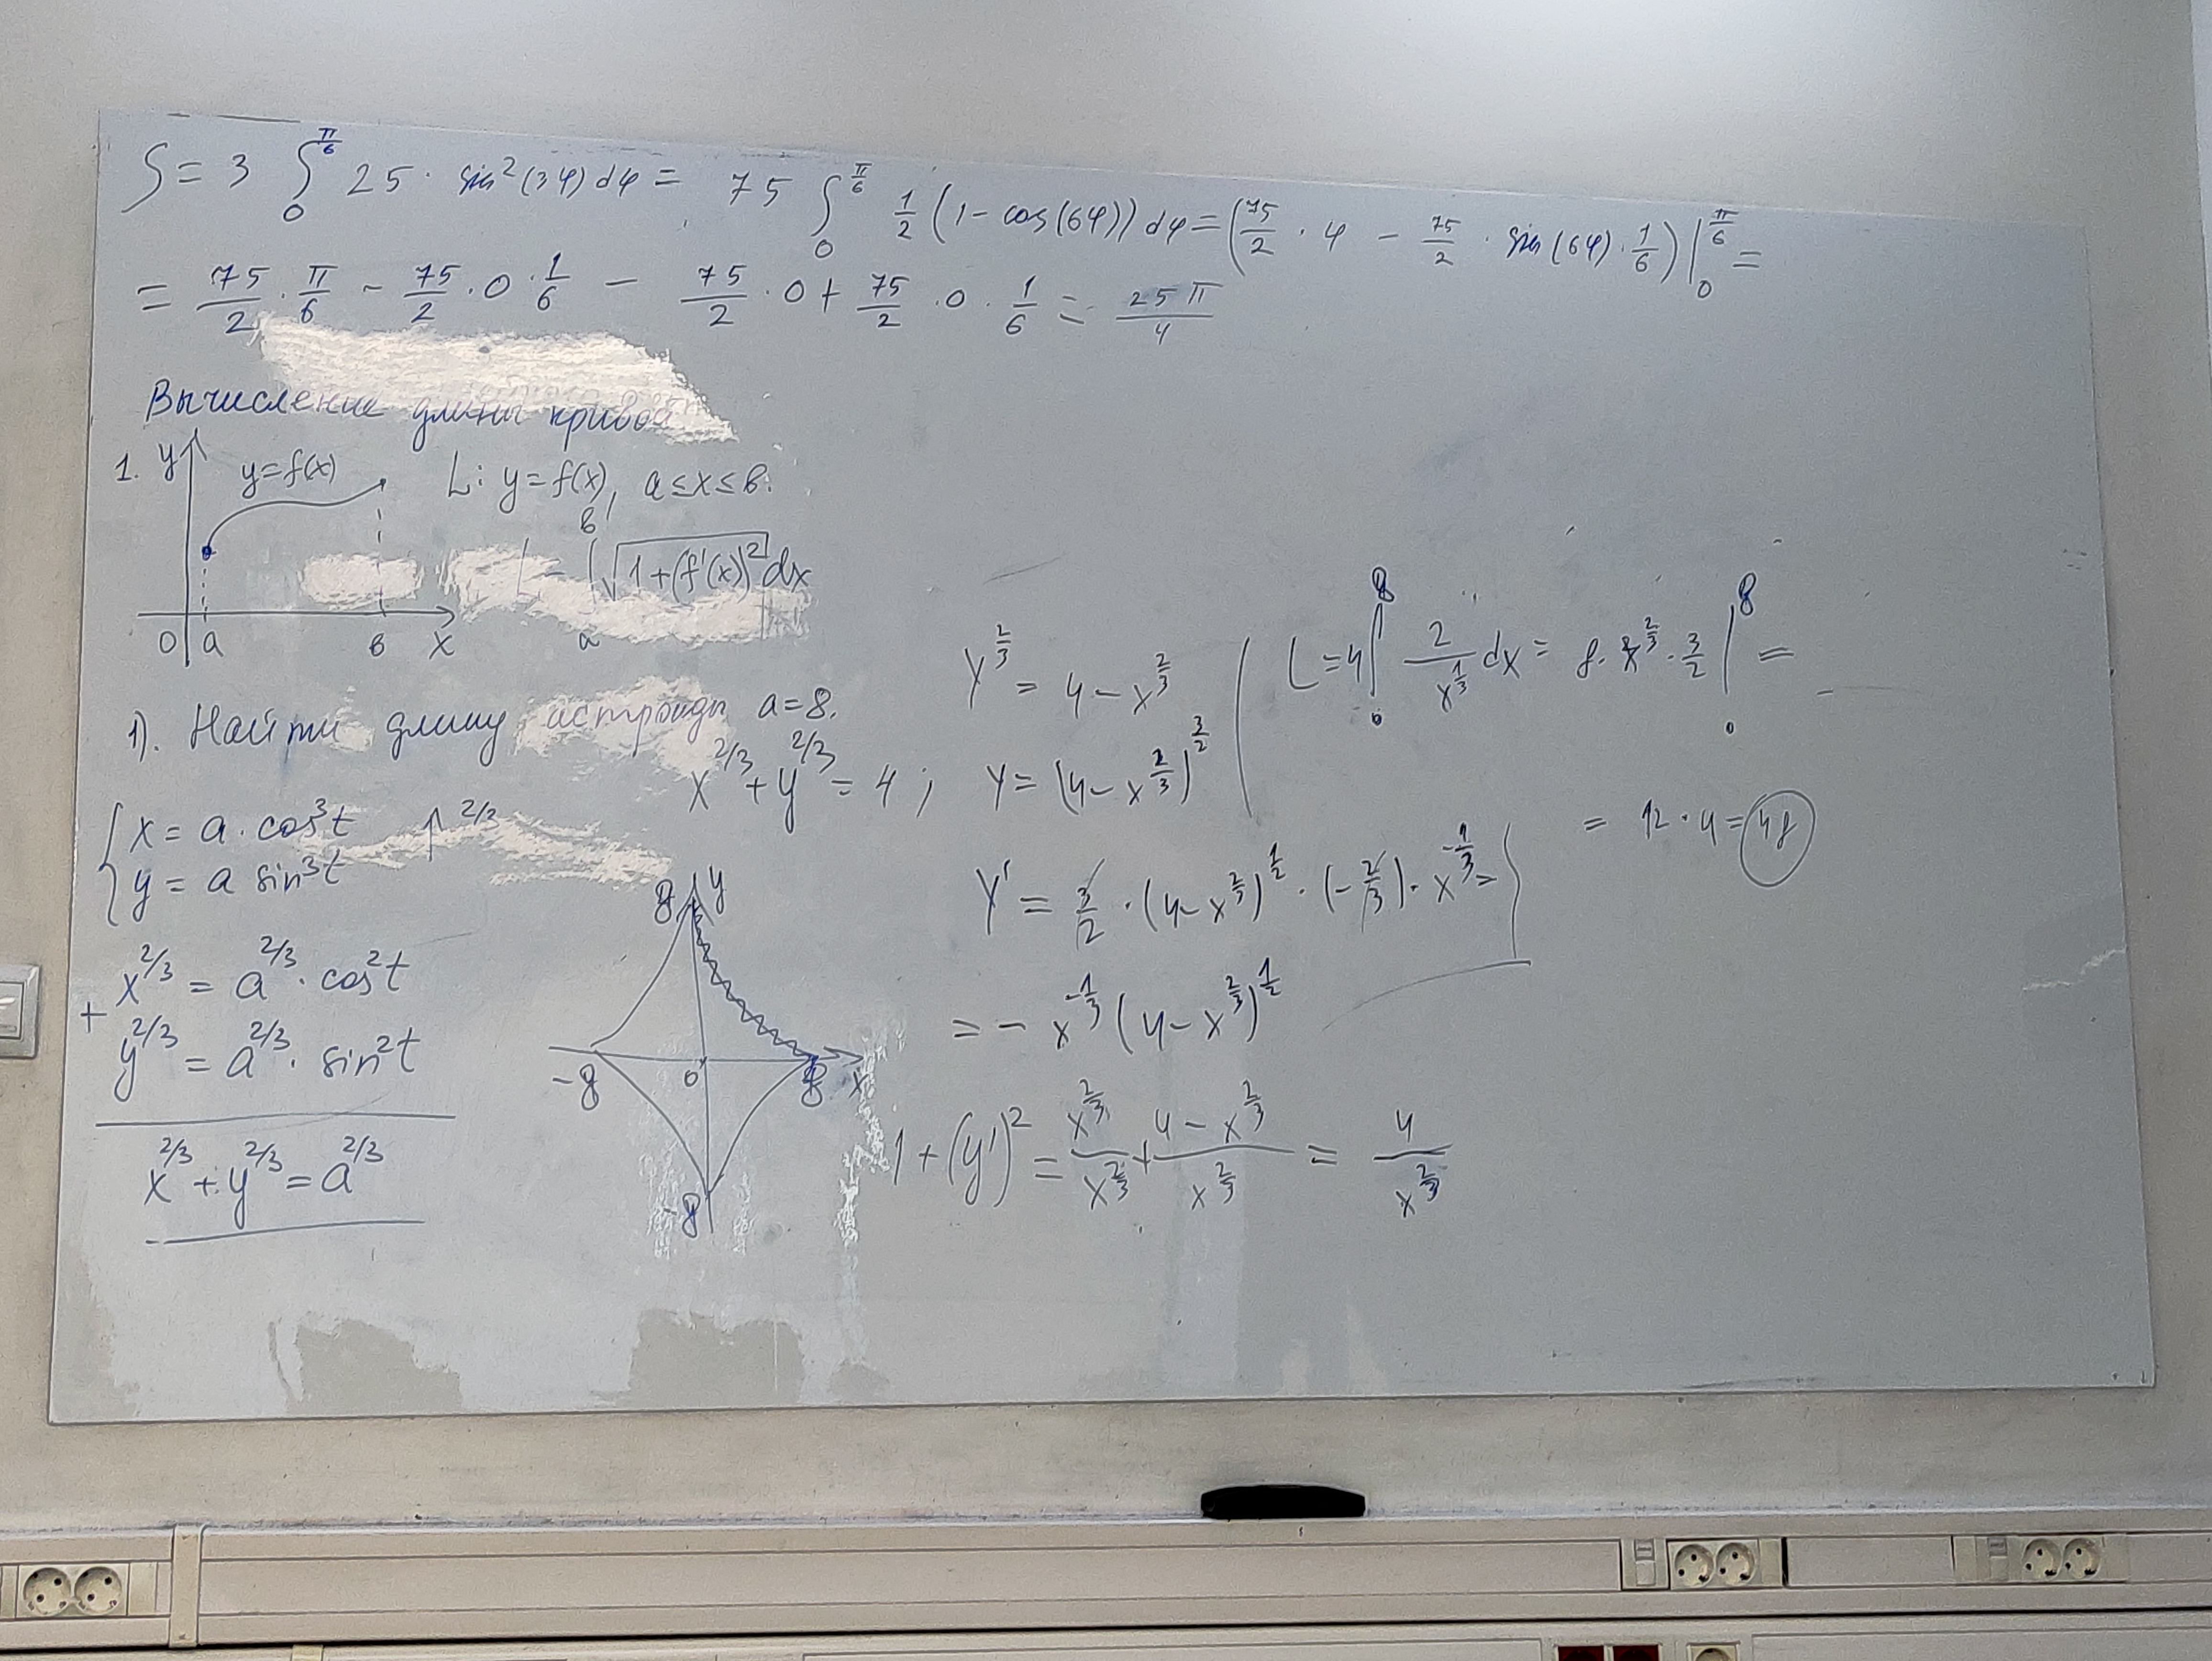 S = 3 ∫₀^(π/6) 25 · sin²(3φ) dφ = 75 ∫₀^(π/6) 1/2 (1 - cos(6φ)) dφ = (75/2 · φ - 75/2 · sin(6φ) · 1/6) |₀^(π/6) =
= 75/2 · π/6 - 75/2 · 0 · 1/6 - 75/2 · 0 + 75/2 · 0 · 1/6 = 25π/4
Вычисление длины кривой
1. y
y = f(x)
L: y = f(x), a ≤ x ≤ b.
L = ∫ₐᵇ √(1 + (f'(x))²) dx
0 a b x
1). Найти длину астроиды a = 8.
x^(2/3) + y^(2/3) = 4 ;
{ x = a · cos³t
y = a sin³t
↑ 2/3
+ x^(2/3) = a^(2/3) · cos²t
y^(2/3) = a^(2/3) · sin²t
x^(2/3) + y^(2/3) = a^(2/3)
8 y
-8 0 8 x
-8
y^(2/3) = 4 - x^(2/3)
y = (4 - x^(2/3))^(3/2)
y' = 3/2 · (4 - x^(2/3))^(1/2) · (-2/3) · x^(-1/3) =
= - x^(-1/3) (4 - x^(2/3))^(1/2)
1 + (y')² = x^(2/3)/x^(2/3) + (4 - x^(2/3))/x^(2/3) = 4/x^(2/3)
L = 4 ∫₀⁸ 2/x^(1/3) dx = 8 · x^(2/3) · 3/2 |₀⁸ =
= 12 · 4 = 48